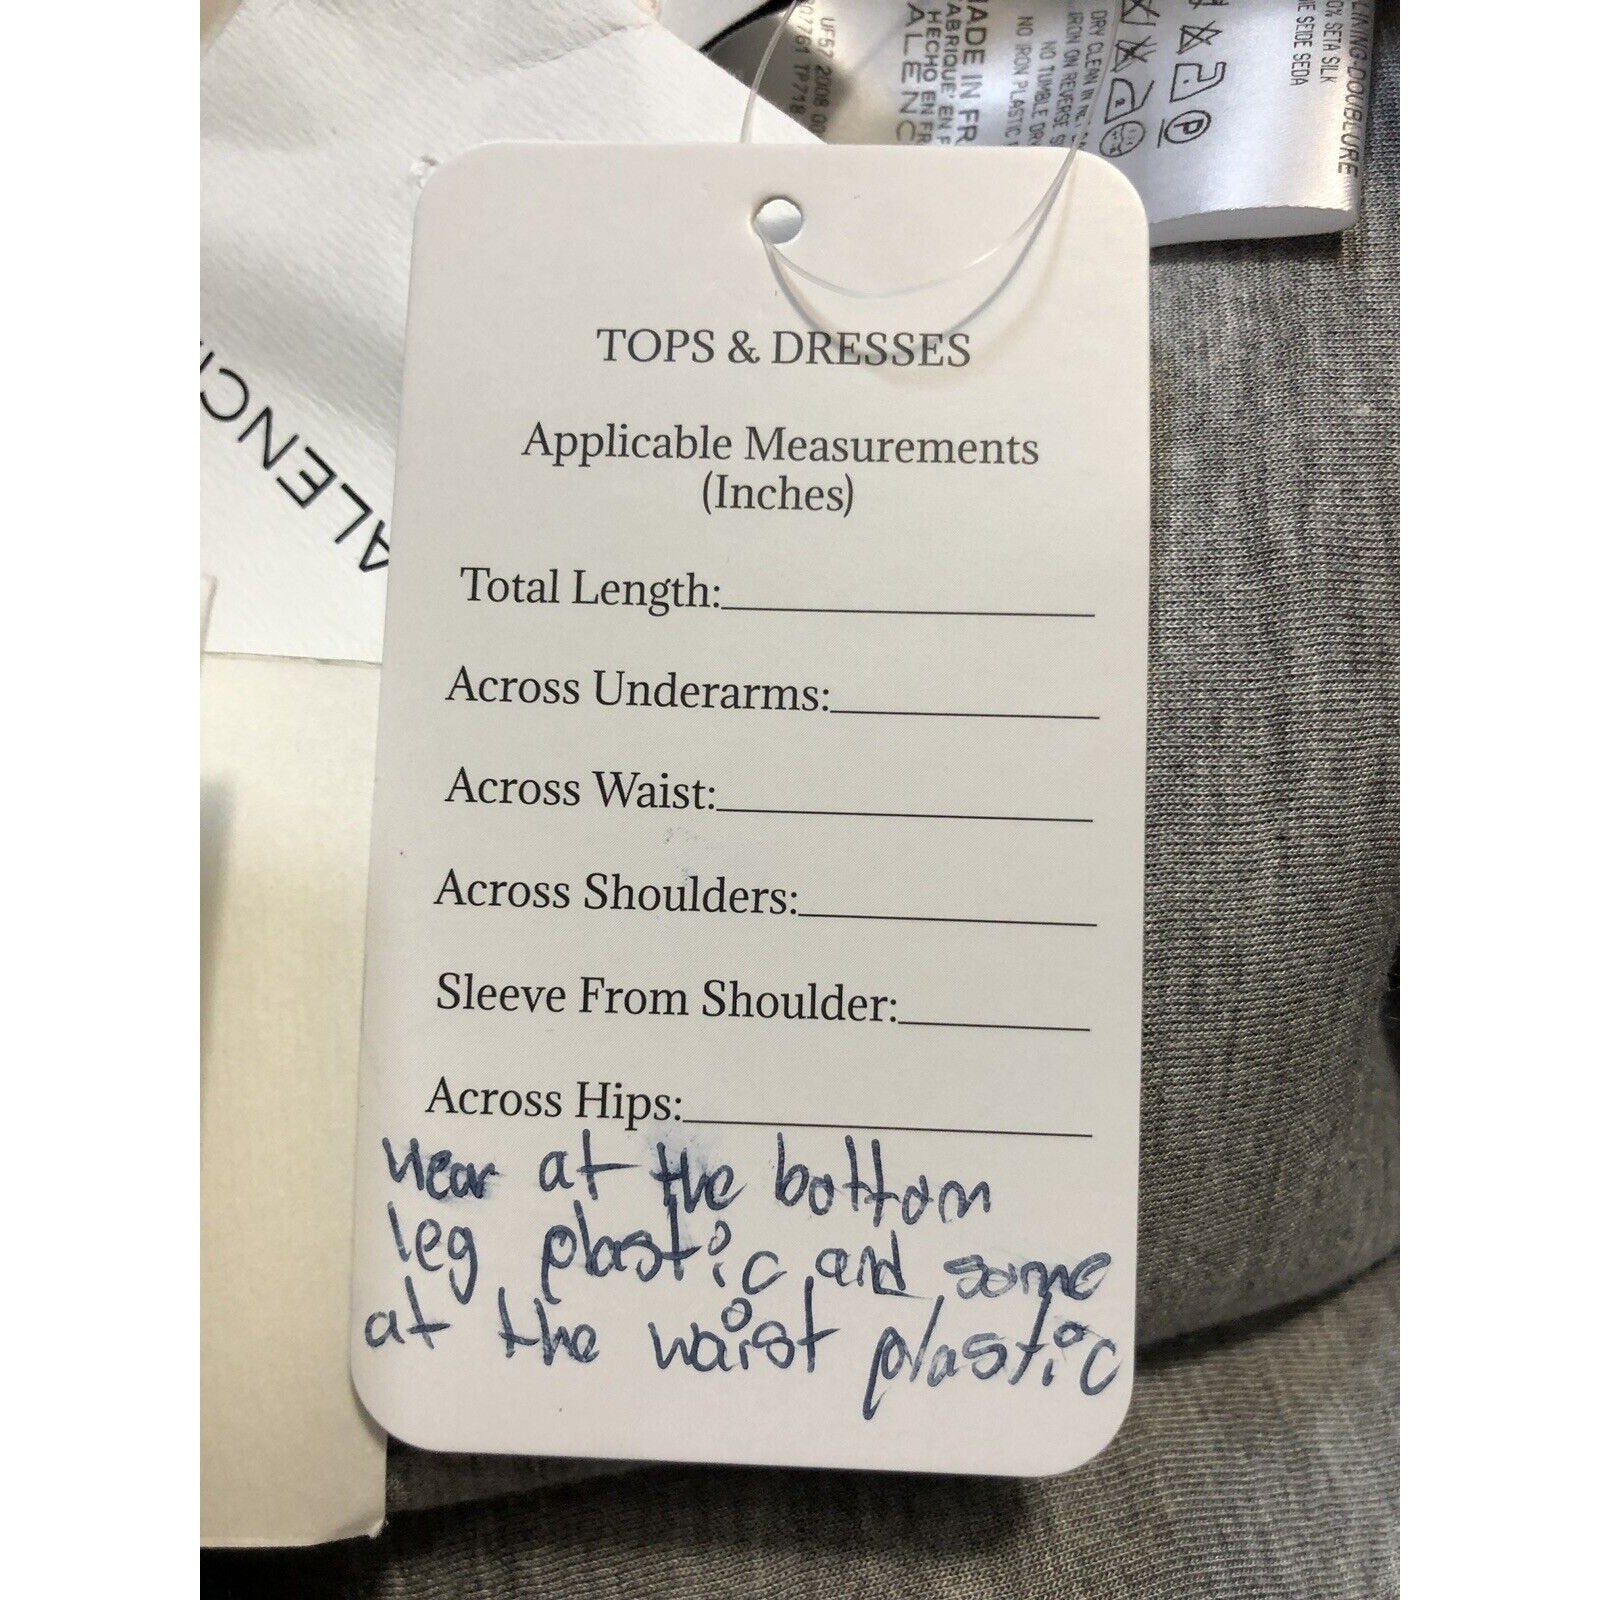 TOPS & DRESSES
Applicable Measurements
(Inches)
Total Length:
Across Underarms:
Across Waist:
Across Shoulders:
Sleeve From Shoulder:
Across Hips:
wear at the bottom
leg plastic and some
at the waist plastic
ALENCI
LINING-DOUBLURE
0% SETA SILK
IE SEIDE SEDA
DRY CLEAN IN
IRON ON REVERSE S
NO TUMBLE DRY
NO IRON PLASTIC
MADE IN FR
FABRIQUE' EN F
HECHO EN FR
ALENC
UF57 2008
07761 TP718
P